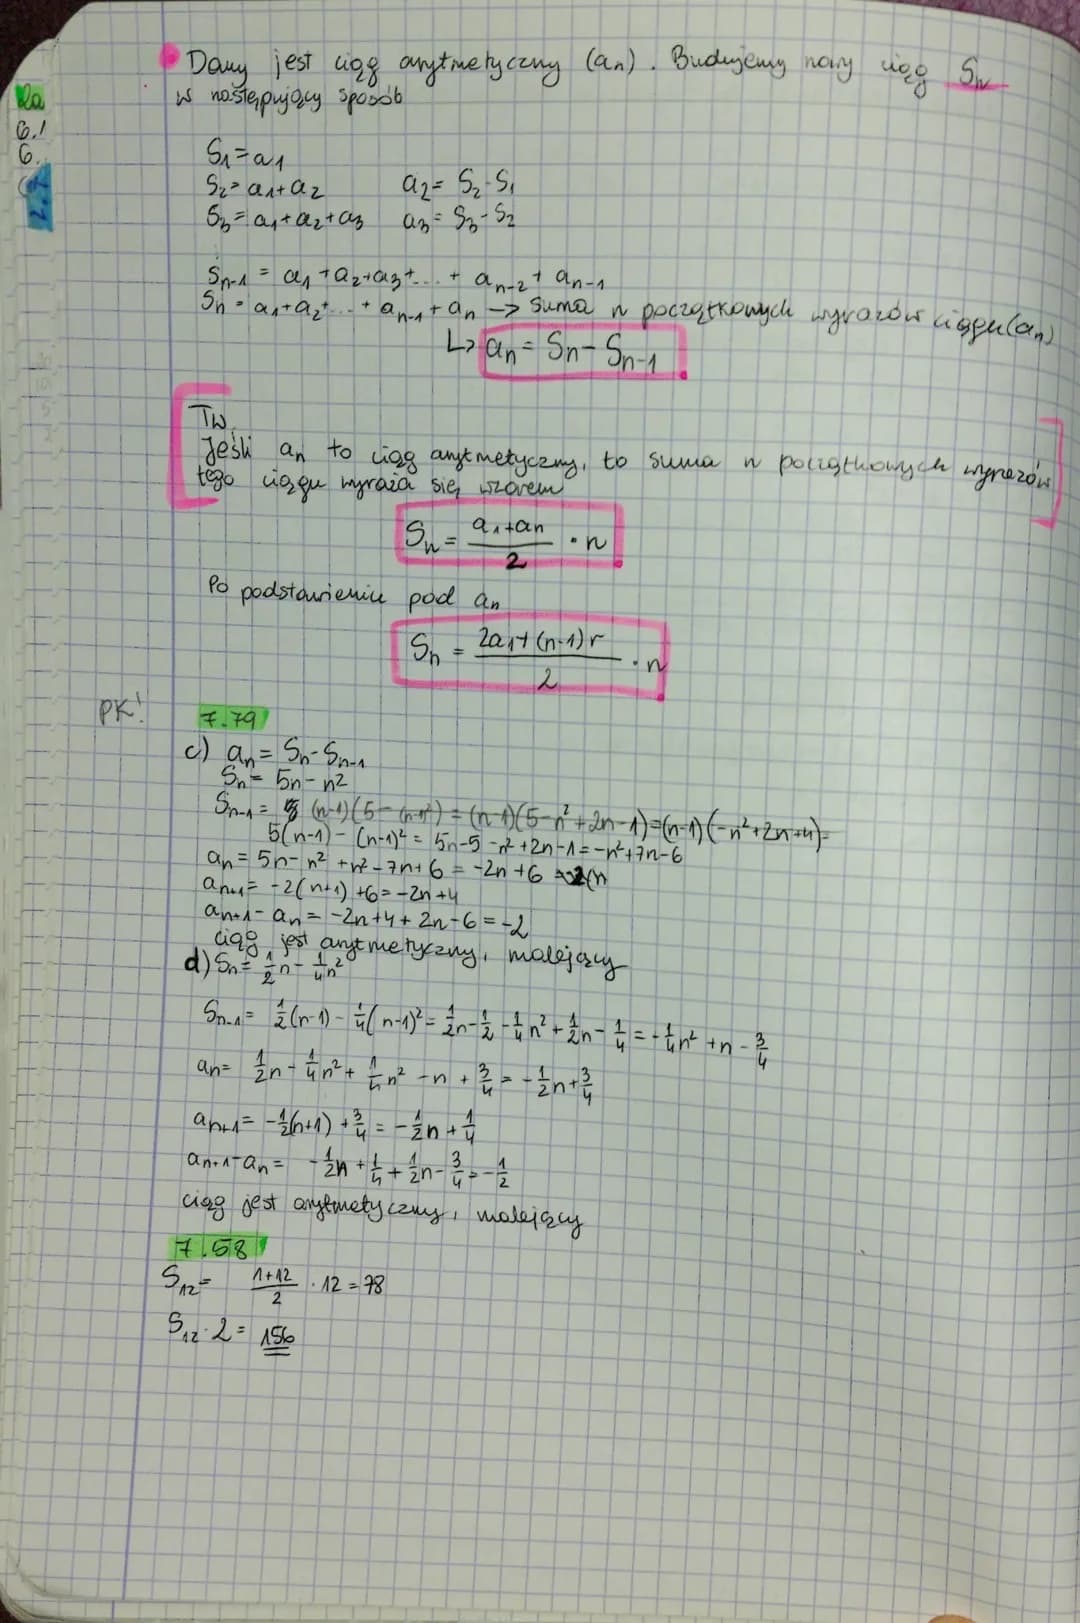 Dany jest ciąg arytmetyczny (an). Budujemy nowy ciąg Sn
w następujący sposób
2a
6.1
6.
S1=a1
S2=a1+a2 a2= S2-S1
S3=a1+a2+a3 a3= S3-S2
Sn-1 = a1+a2+a3+...+ an-2+an-1
Sn = a1+a2+...+an-1+an -> suma n początkowych wyrazów ciągu(an)
↳ an= Sn- Sn-1
Tw.
Jeśli an to ciąg arytmetyczny, to suma n początkowych wyrazów
tego ciągu wyraża się wzorem
Sn= (a1+an)/2 · n
Po podstawieniu pod an
Sn = (2a1+(n-1)r)/2 · n
PK!
7.79
c) an= Sn-Sn-1
Sn= 5n-n²
Sn-1= (n-1)(5-(n-n²) = (n-1)(5-n²+2n-1)=(n-1)(-n²+2n+4)=
5(n-1)-(n-1)² = 5n-5-n²+2n-1=-n²+7n-6
an= 5n-n²+n²-7n+6 = -2n+6
an+1= -2(n+1)+6=-2n+4
an+1-an= -2n+4+2n-6=-2
ciąg jest arytmetyczny, malejący
d) Sn= 1/2n-1/4n²
Sn-1= 1/2(n-1)-1/4(n-1)²= 1/2n-1/2-1/4n²+1/2n-1/4=-1/4n²+n-3/4
an= 1/2n-1/4n²+1/4n²-n+3/4=-1/2n+3/4
an+1= -1/2(n+1)+3/4=-1/2n+1/4
an+1-an= -1/2n+1/4+1/2n-3/4=-1/2
ciąg jest arytmetyczny, malejący
7.58
S12= (1+12)/2 · 12=78
S12·2= 156